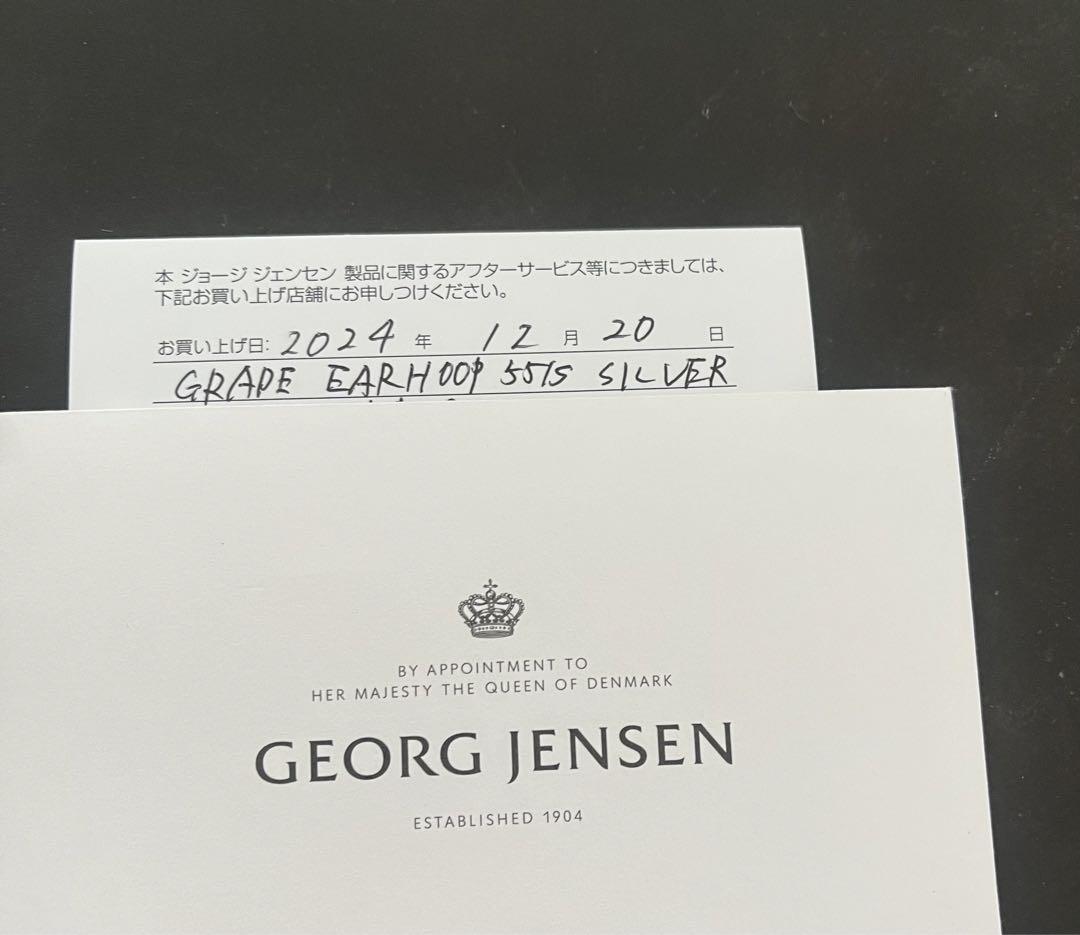 本 ジョージ ジェンセン 製品に関するアフターサービス等につきましては、
下記お買い上げ店舗にお申しつけください。
お買い上げ日: 2024 年 12 月 20 日
GRAPE EARHOOP 551S SILVER
BY APPOINTMENT TO
HER MAJESTY THE QUEEN OF DENMARK
GEORG JENSEN
ESTABLISHED 1904